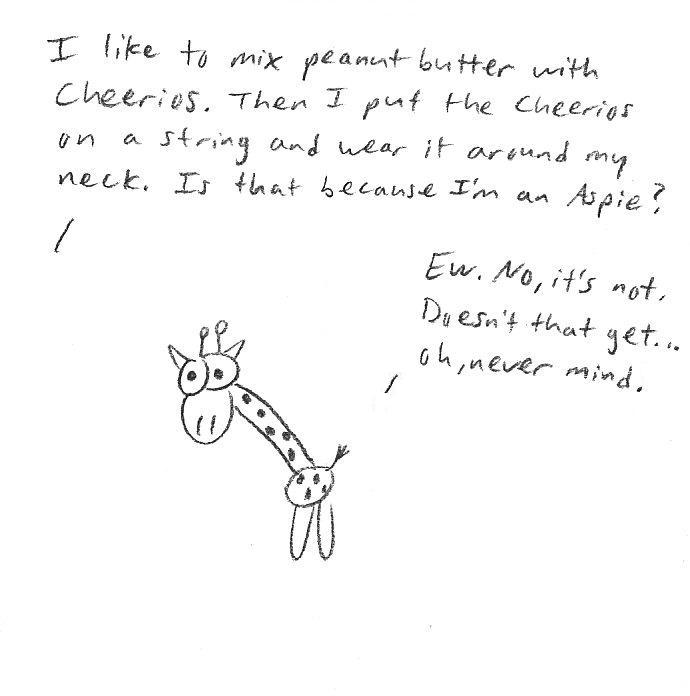 I like to mix peanut butter with
Cheerios. Then I put the Cheerios
on a string and wear it around my
neck. Is that because I'm an Aspie?
Ew. No, it's not.
Doesn't that get...
oh, never mind.